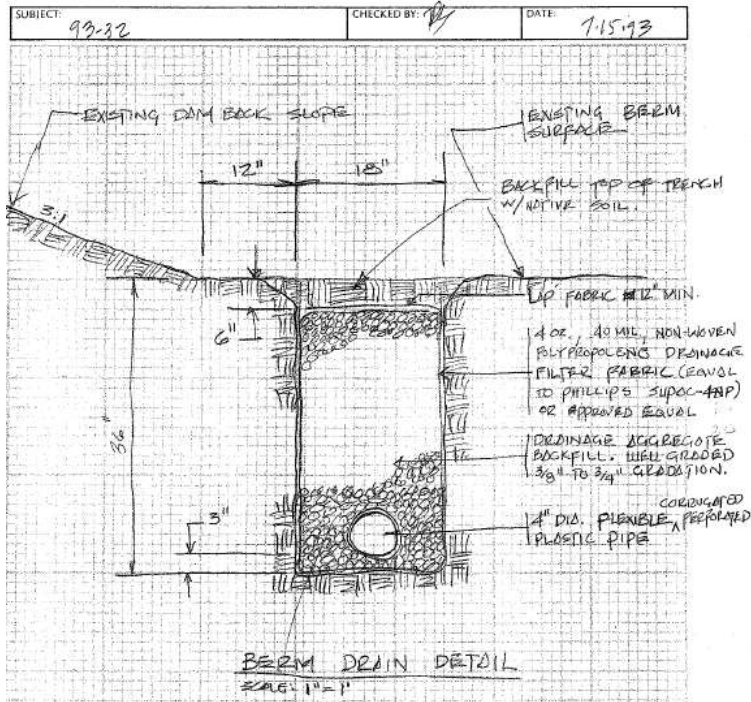 SUBJECT:
93-32
CHECKED BY:
DATE:
7.15.93
EXISTING DAM BACK SLOPE
EXISTING BERM
SURFACE
12"
18"
BACKFILL TOP OF TRENCH
W/NATIVE SOIL.
3:1
LAP FABRIC 12" MIN.
6"
4 OZ., 40 MIL, NON-WOVEN
POLYPROPOLENE DRAINAGE
FILTER FABRIC (EQUAL
TO PHILLIPS SUPAC-4NP)
OR APPROVED EQUAL
36"
DRAINAGE AGGREGATE
BACKFILL. WELL GRADED
3/8" TO 3/4" GRADATION.
3"
CORRUGATED
4" DIA. FLEXIBLE, PERFORATED
PLASTIC PIPE
BERM DRAIN DETAIL
SCALE: 1"=1'